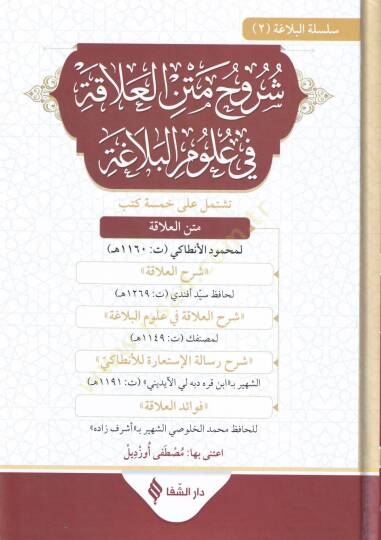 سلسلة البلاغة (٢)
شُرُوحُ مَتْنِ العَلَاقَةِ
فِي عُلُومِ البَلَاغَةِ
تشتمل على خمسة كتب
متن العلاقة
لمحمود الأنطاكي (ت: ١١٦٠هـ)
«شرح العلاقة»
لحافظ سيّد أفندي (ت: ١٢٦٩هـ)
«شرح العلاقة في علوم البلاغة»
لمصنفك (ت: ١١٤٩هـ)
«شرح رسالة الإستعارة للأنطاكيّ»
الشهير بـ«ابن قره دبه لي الآيديني» (ت: ١١٩١هـ)
«فوائد العلاقة»
للحافظ محمد الخلوصي الشهير بـ«أشرف زاده»
اعتنى بها: مُصْطَفى أُوزْدِيلْ
دار الشفا